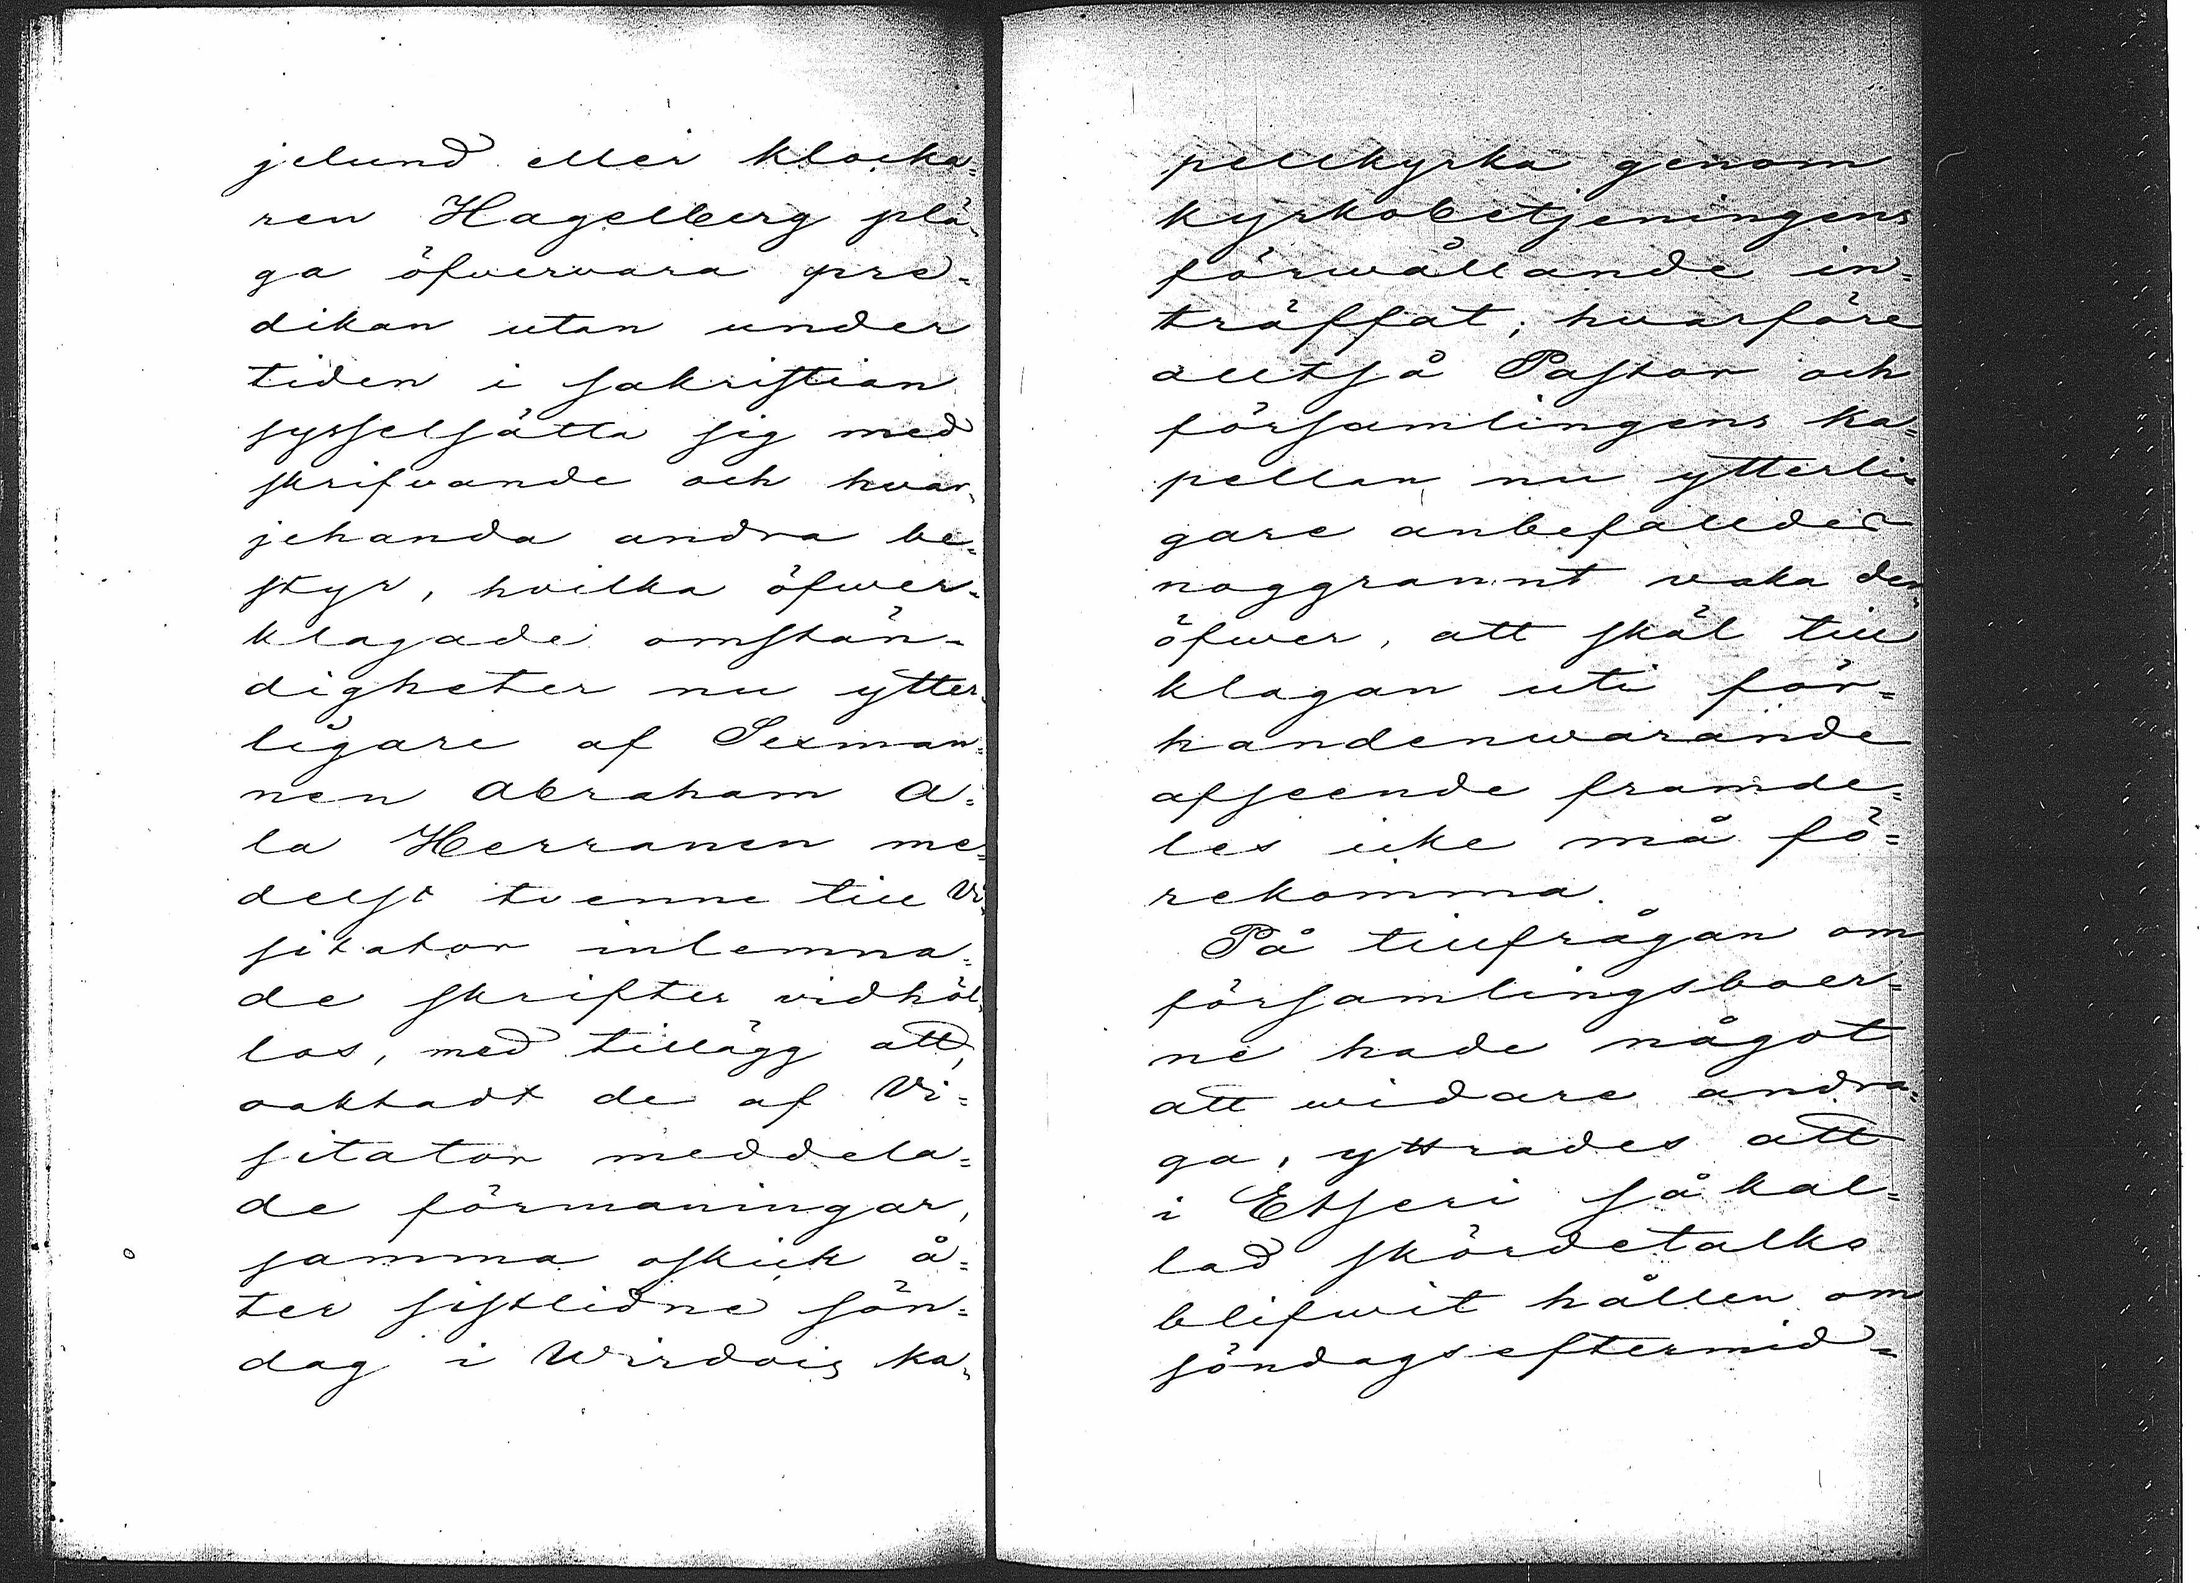 jelund eller klocka=
ren Hagelberg plä=
ga öfvervara pre=
dikan utan under
tiden i sakristian
sysselsätta sig med
skrifvande och hvar=
jehanda andra be=
styr, hvilka öfwer=
klagade omstän=
digheter nu ytter=
ligare af Sexman=
nen Abraham A=
la Herranen me=
delst tvenne till Vi=
sitator inlemna=
de skrifter vidhöl=
los, med tillägg att,
oaktadt de af Vi=
sitator meddela=
de förmaningar,
samma oskick å=
ter sistlidne sön=
dag i Wirdois ka=
pellkyrka genom
kyrkobetjeningens
förwållande in=
träffat; hvarföre
alltså Pastor och
församlingens ka=
pellan nu ytterli=
gare anbefalldes
noggrannt vaka der=
öfwer, att skäl till
klagan uti för=
handenwarande
afseende framde=
les icke må fö=
rekomma.
På tillfrågan om
församlingsboer=
ne hade något
att widare andra=
ga, yttrades att
i Etseri så kal=
lad skördetalko
blifwit hållen om
söndagseftermid=